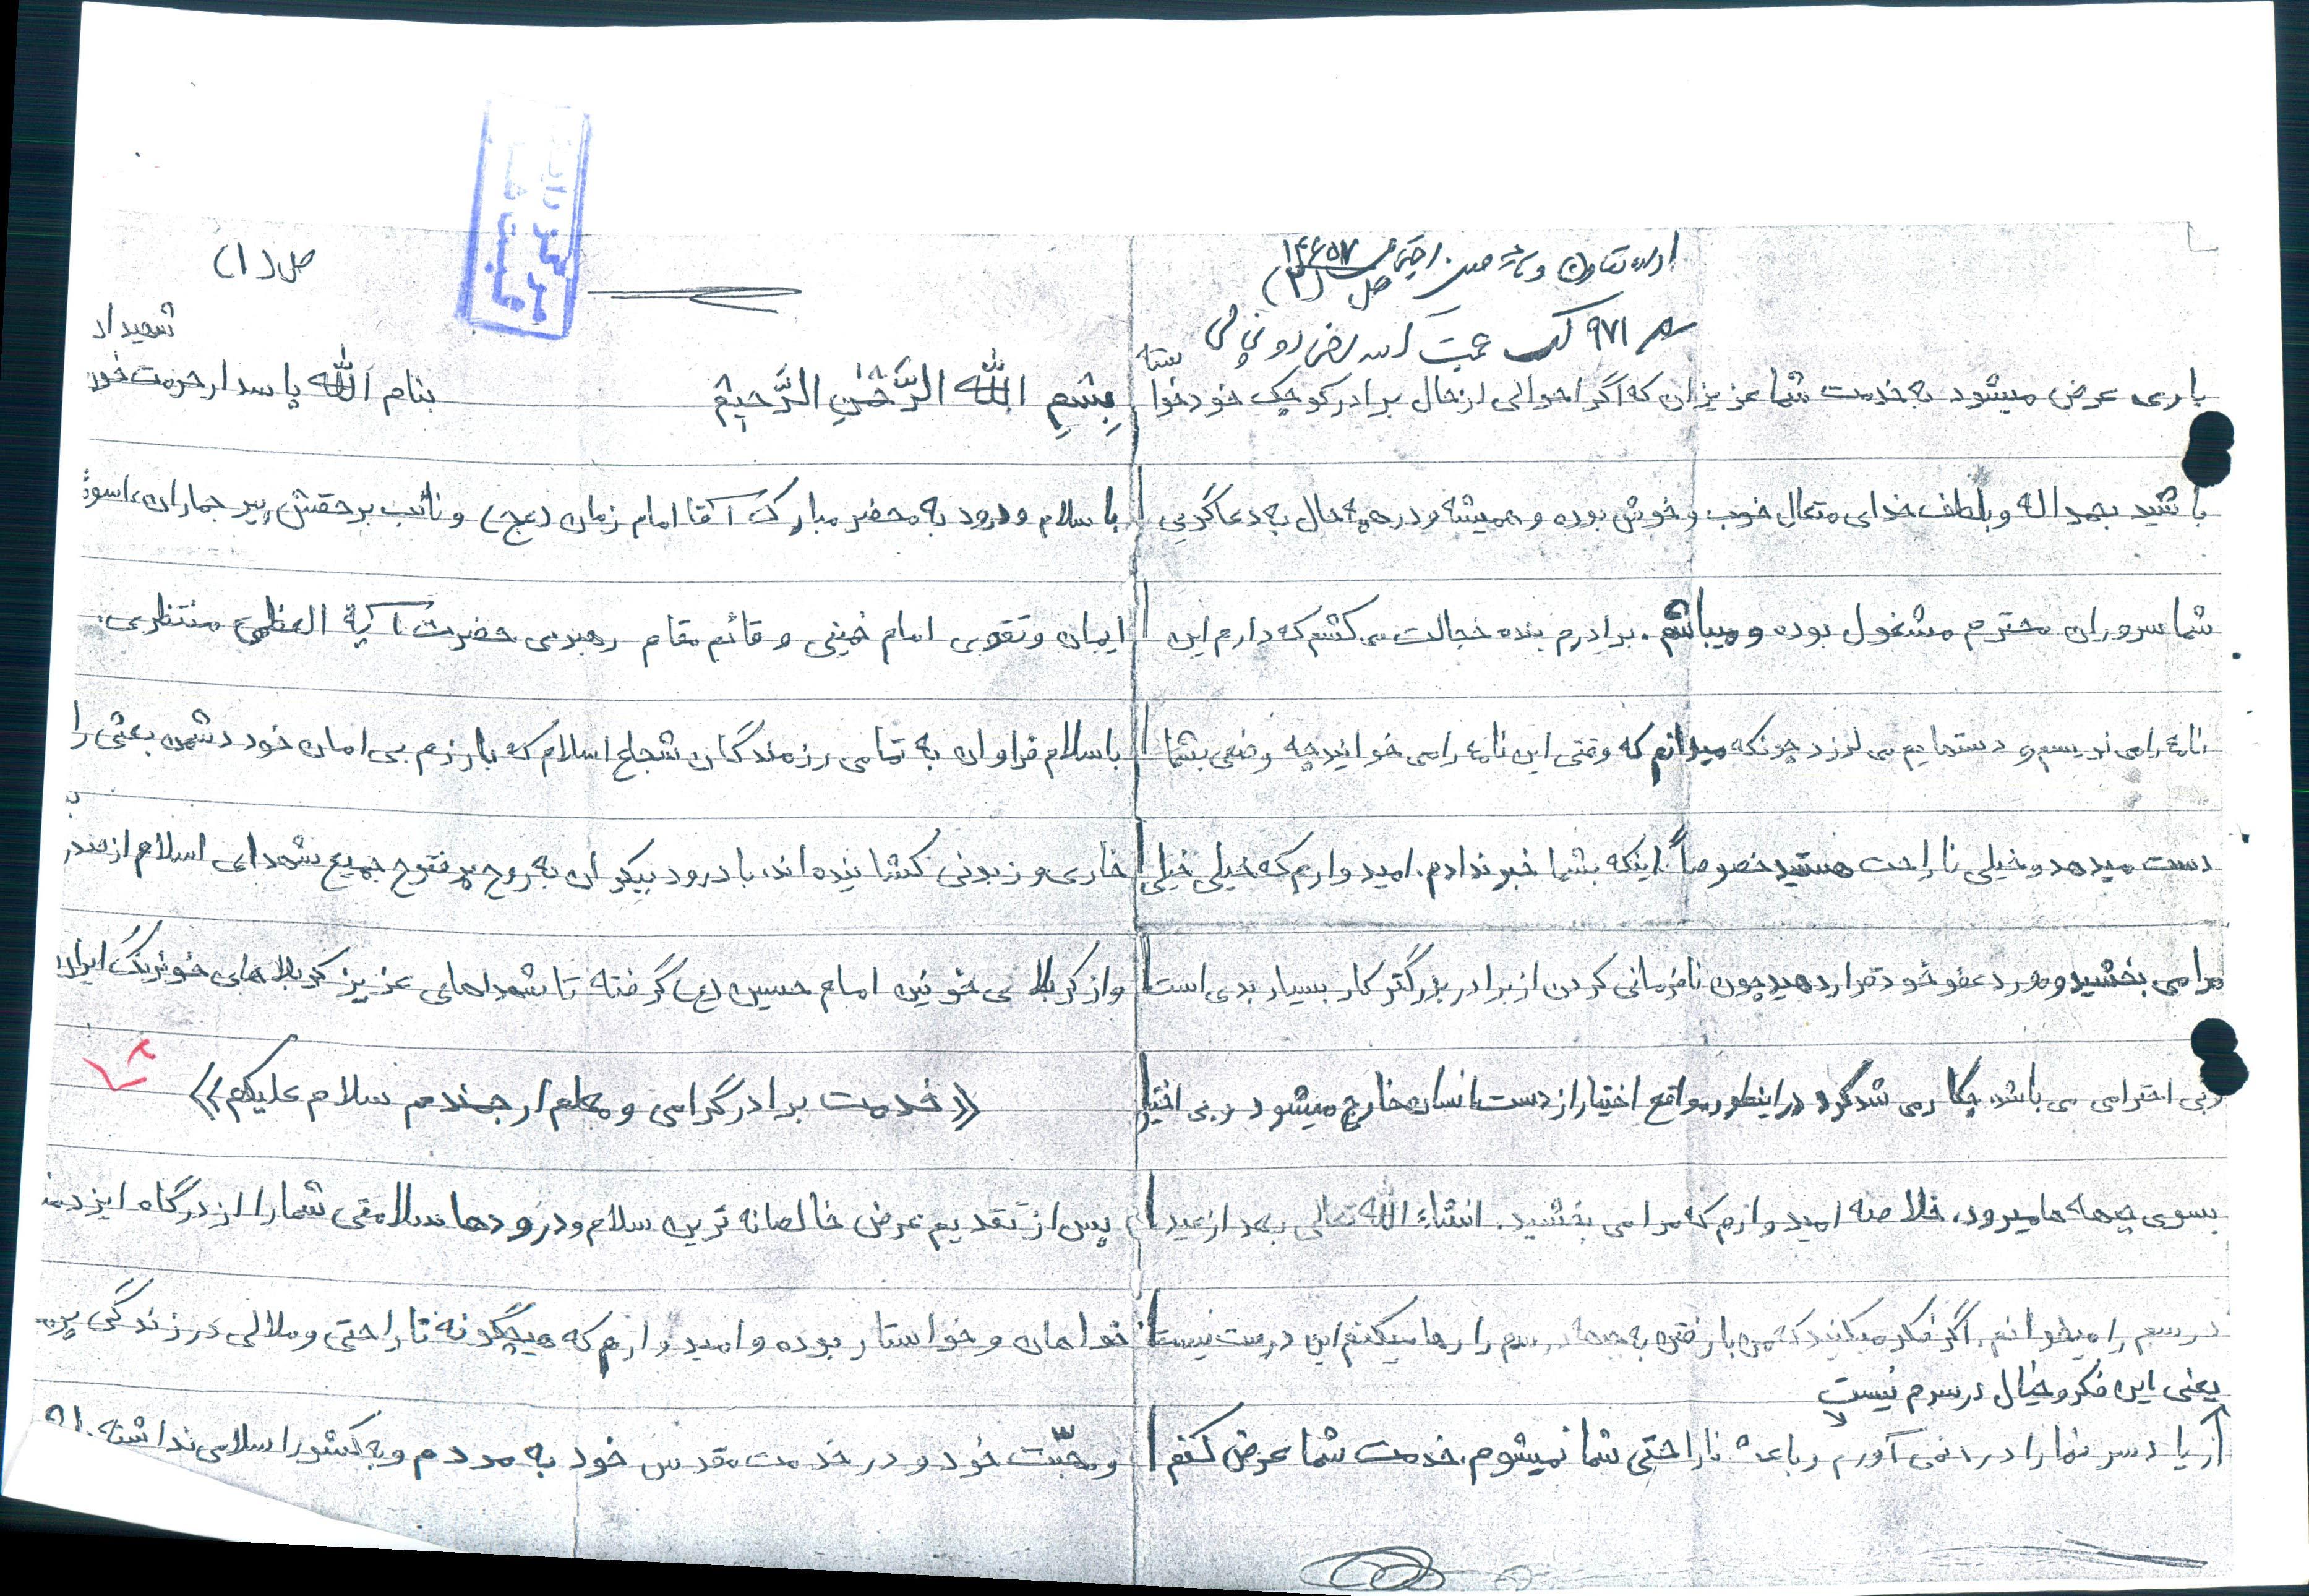 ص (۱)
بنام الله پاسدار حرمت خون شهیدان
بِسْمِ اللّٰهِ الرَّحْمٰنِ الرَّحیٖمِ
با سلام و درود به محضر مبارک آقا امام زمان (عج) و نائب بر حقش پیر جماران، اسوهٔ
ایمان و تقوی امام خمینی و قائم مقام رهبری حضرت آیة العظمی منتظری.
با سلام فراوان به تمامی رزمندگان شجاع اسلام که با رزم بی امان خود دشمن بعثی را
خاری و زبونی کشانیده اند، با درود بیکران به روح پر فتوح جمیع شهدای اسلام از صدر
و از کربلای خونین امام حسین (ع) گرفته تا شهداهای عزیز کربلاهای خونرنگ ایران
«خدمت برادر گرامی و معلم ارجمندم سلام علیکم»
پس از تقدیم عرض خالصانه ترین سلام و درودها سلامتی شما را از درگاه ایزد
خواهان و خواستار بوده و امیدوارم که هیچگونه ناراحتی و ملالی در زندگی
و محبّت خود و در خدمت مقدس خود به مردم و به کشور اسلامی نداشته
ص (۲)
باری عرض میشود به خدمت شما عزیزان که اگر احوالی از حال برادر کوچک خود خواسته
باشید بحمداله و بلطف خدای متعال خوب و خوش بوده و همیشه و در همه حال به دعاگویی
شما سروران محترم مشغول بوده و میباشم. برادرم بنده خجالت می کشم که دارم این
نامه را می نویسم و دستهایم می لرزد چونکه میدانم که وقتی این نامه را می خوانید چه وضعی بشما
دست میدهد و خیلی ناراحت هستید خصوصاً اینکه بشما خبر ندادم. امیدوارم که خیلی خیلی
مرا می بخشید و مورد عفو خود قرار دهید چون نافرمانی کردن از برادر بزرگتر کار بسیار بدی است
و بی احترامی می باشد چکار می شد کرد در اینطور مواقع اختیار از دست انسان خارج میشود و بی اختیار
بسوی جبهه ها میرود، خلاصه امیدوارم که مرا می بخشید. انشاء الله تعالی بعد از عید
درسم را میخوانم. اگر فکر میکنید که من با رفتن به جبهه درسم را رها میکنم این درست نیست
یعنی این فکر و خیال در سرم نیست
از یاد سر شما را در نمی آورم و باعث ناراحتی شما نمیشوم. خدمت شما عرض کنم